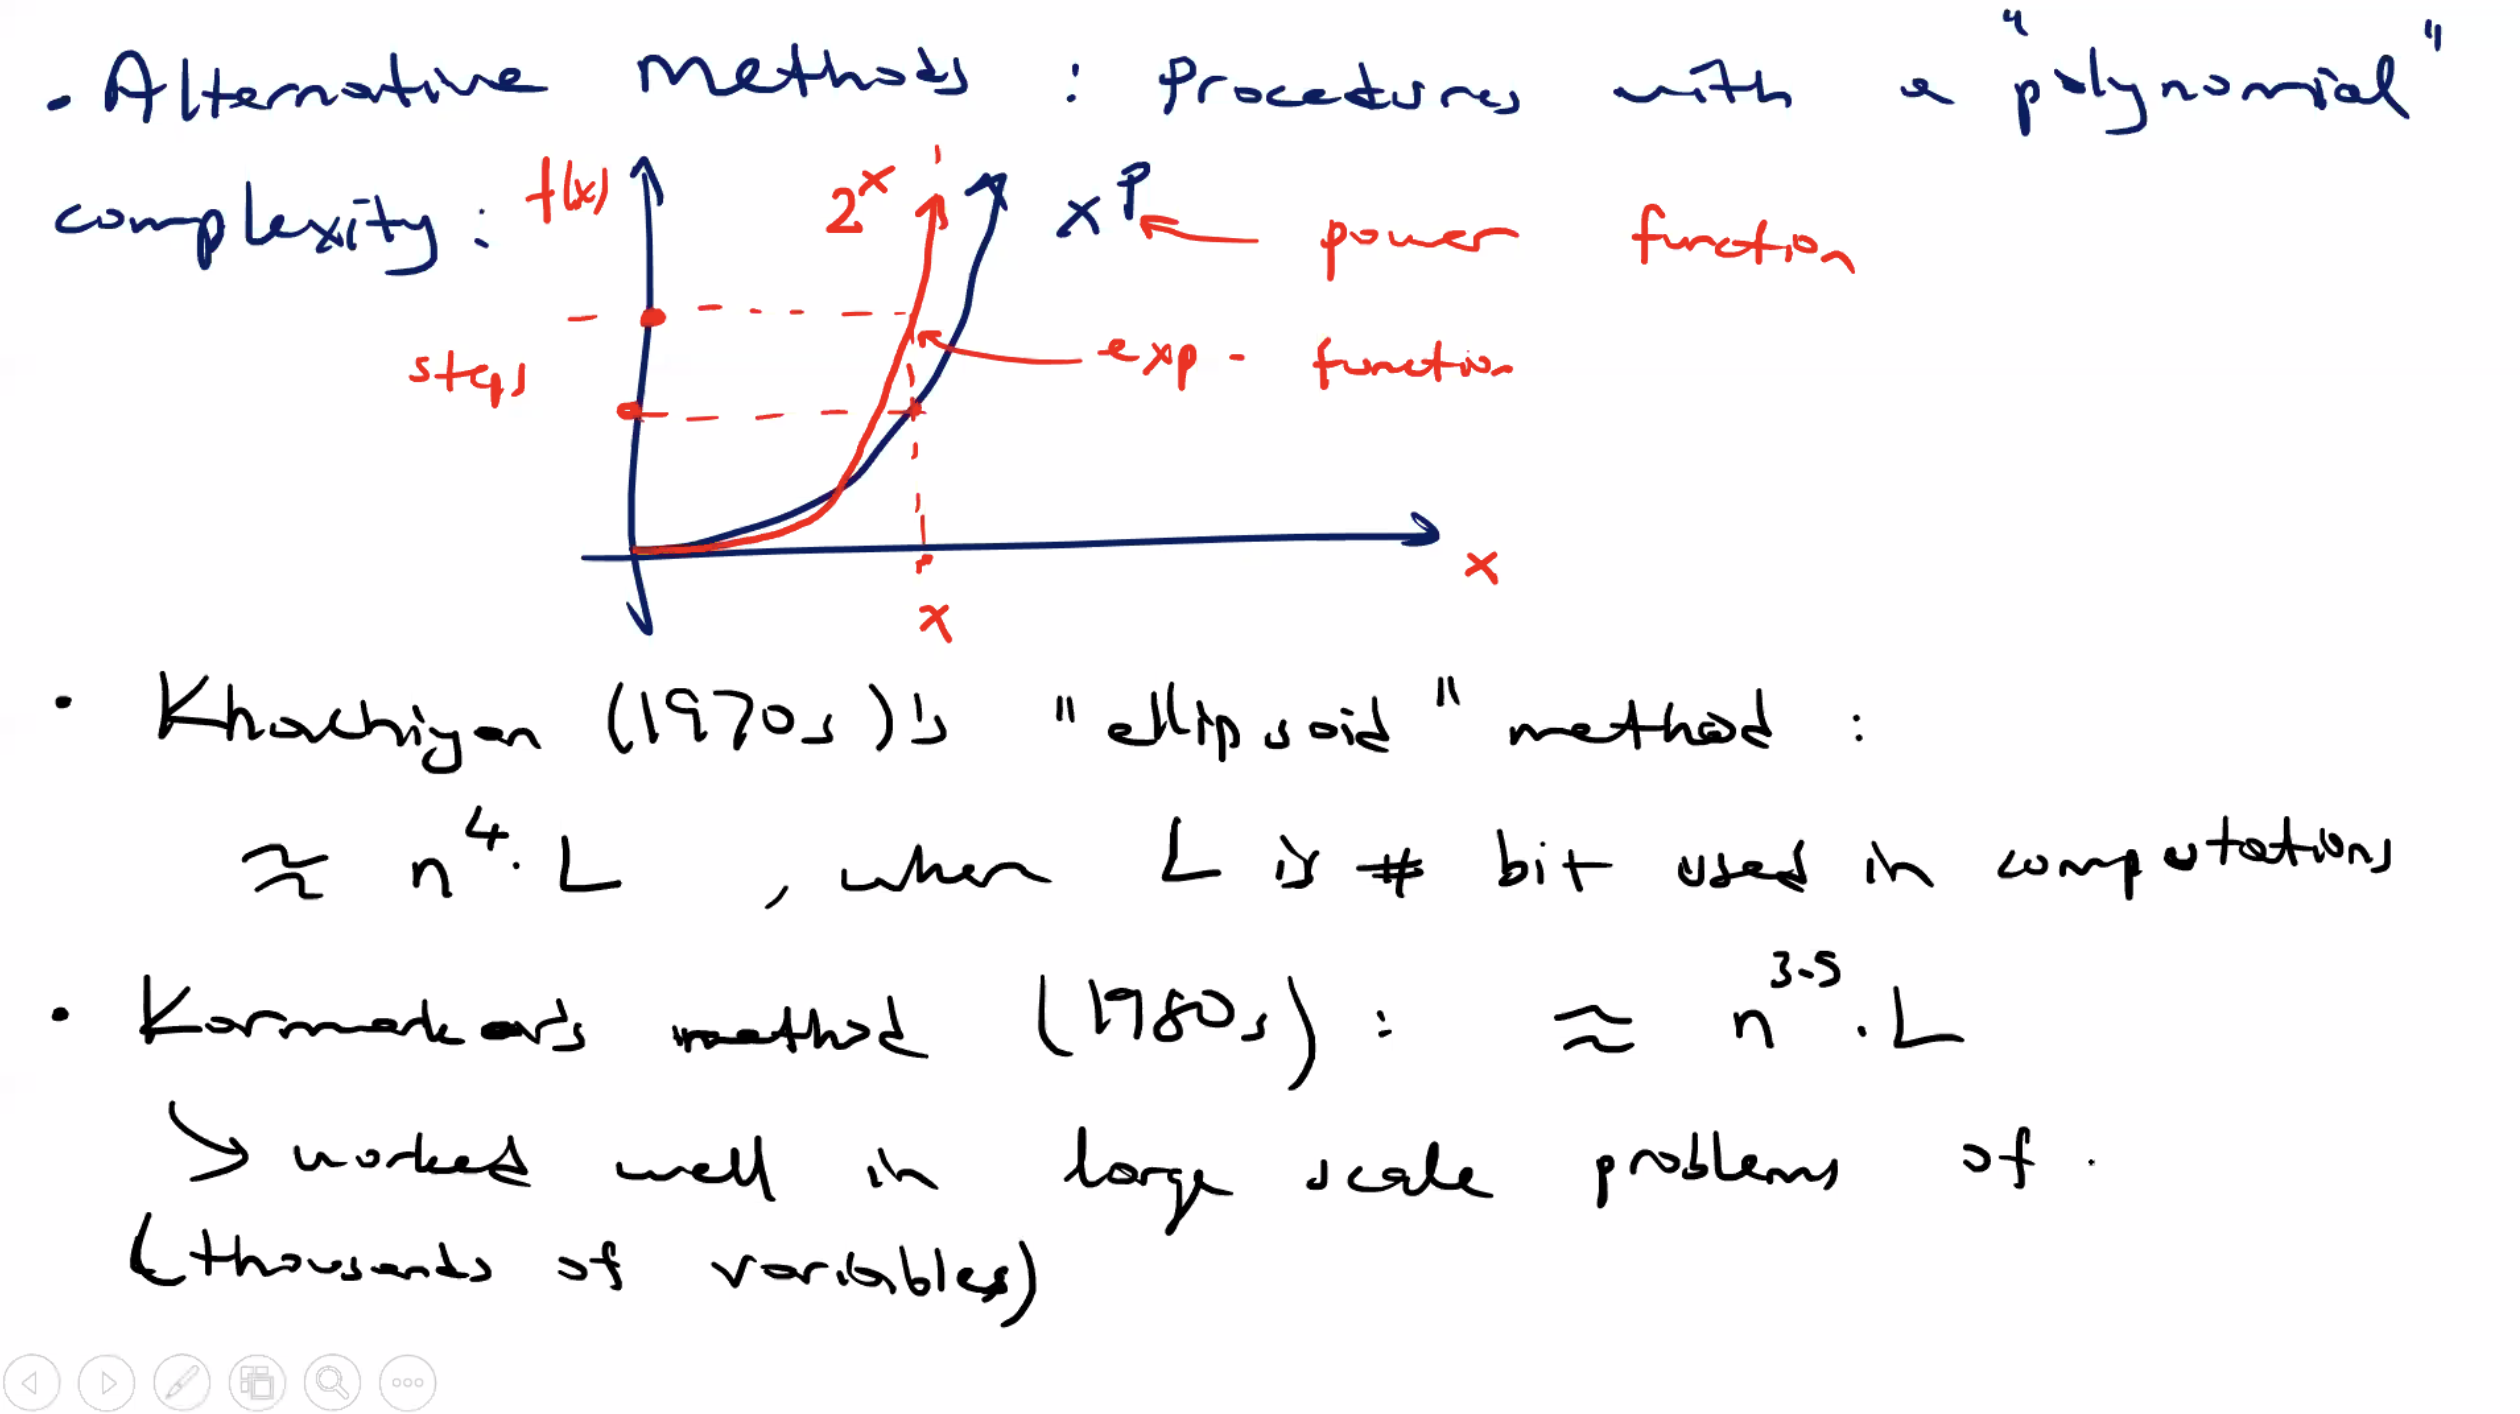 • Alternative Methods : Procedures with a "polynomial"
complexity :
f(x)
2^x
x^p ← power function
steps
exp - function
x
x
• Khachiyan (1970s)'s "ellipsoid" method :
≈ n^4 · L , when L is # bit used in computations
• Karmarkar's method (1980s) : ≈ n^3.5 · L
↘ worked well in large scale problems of .
(thousands of variables)